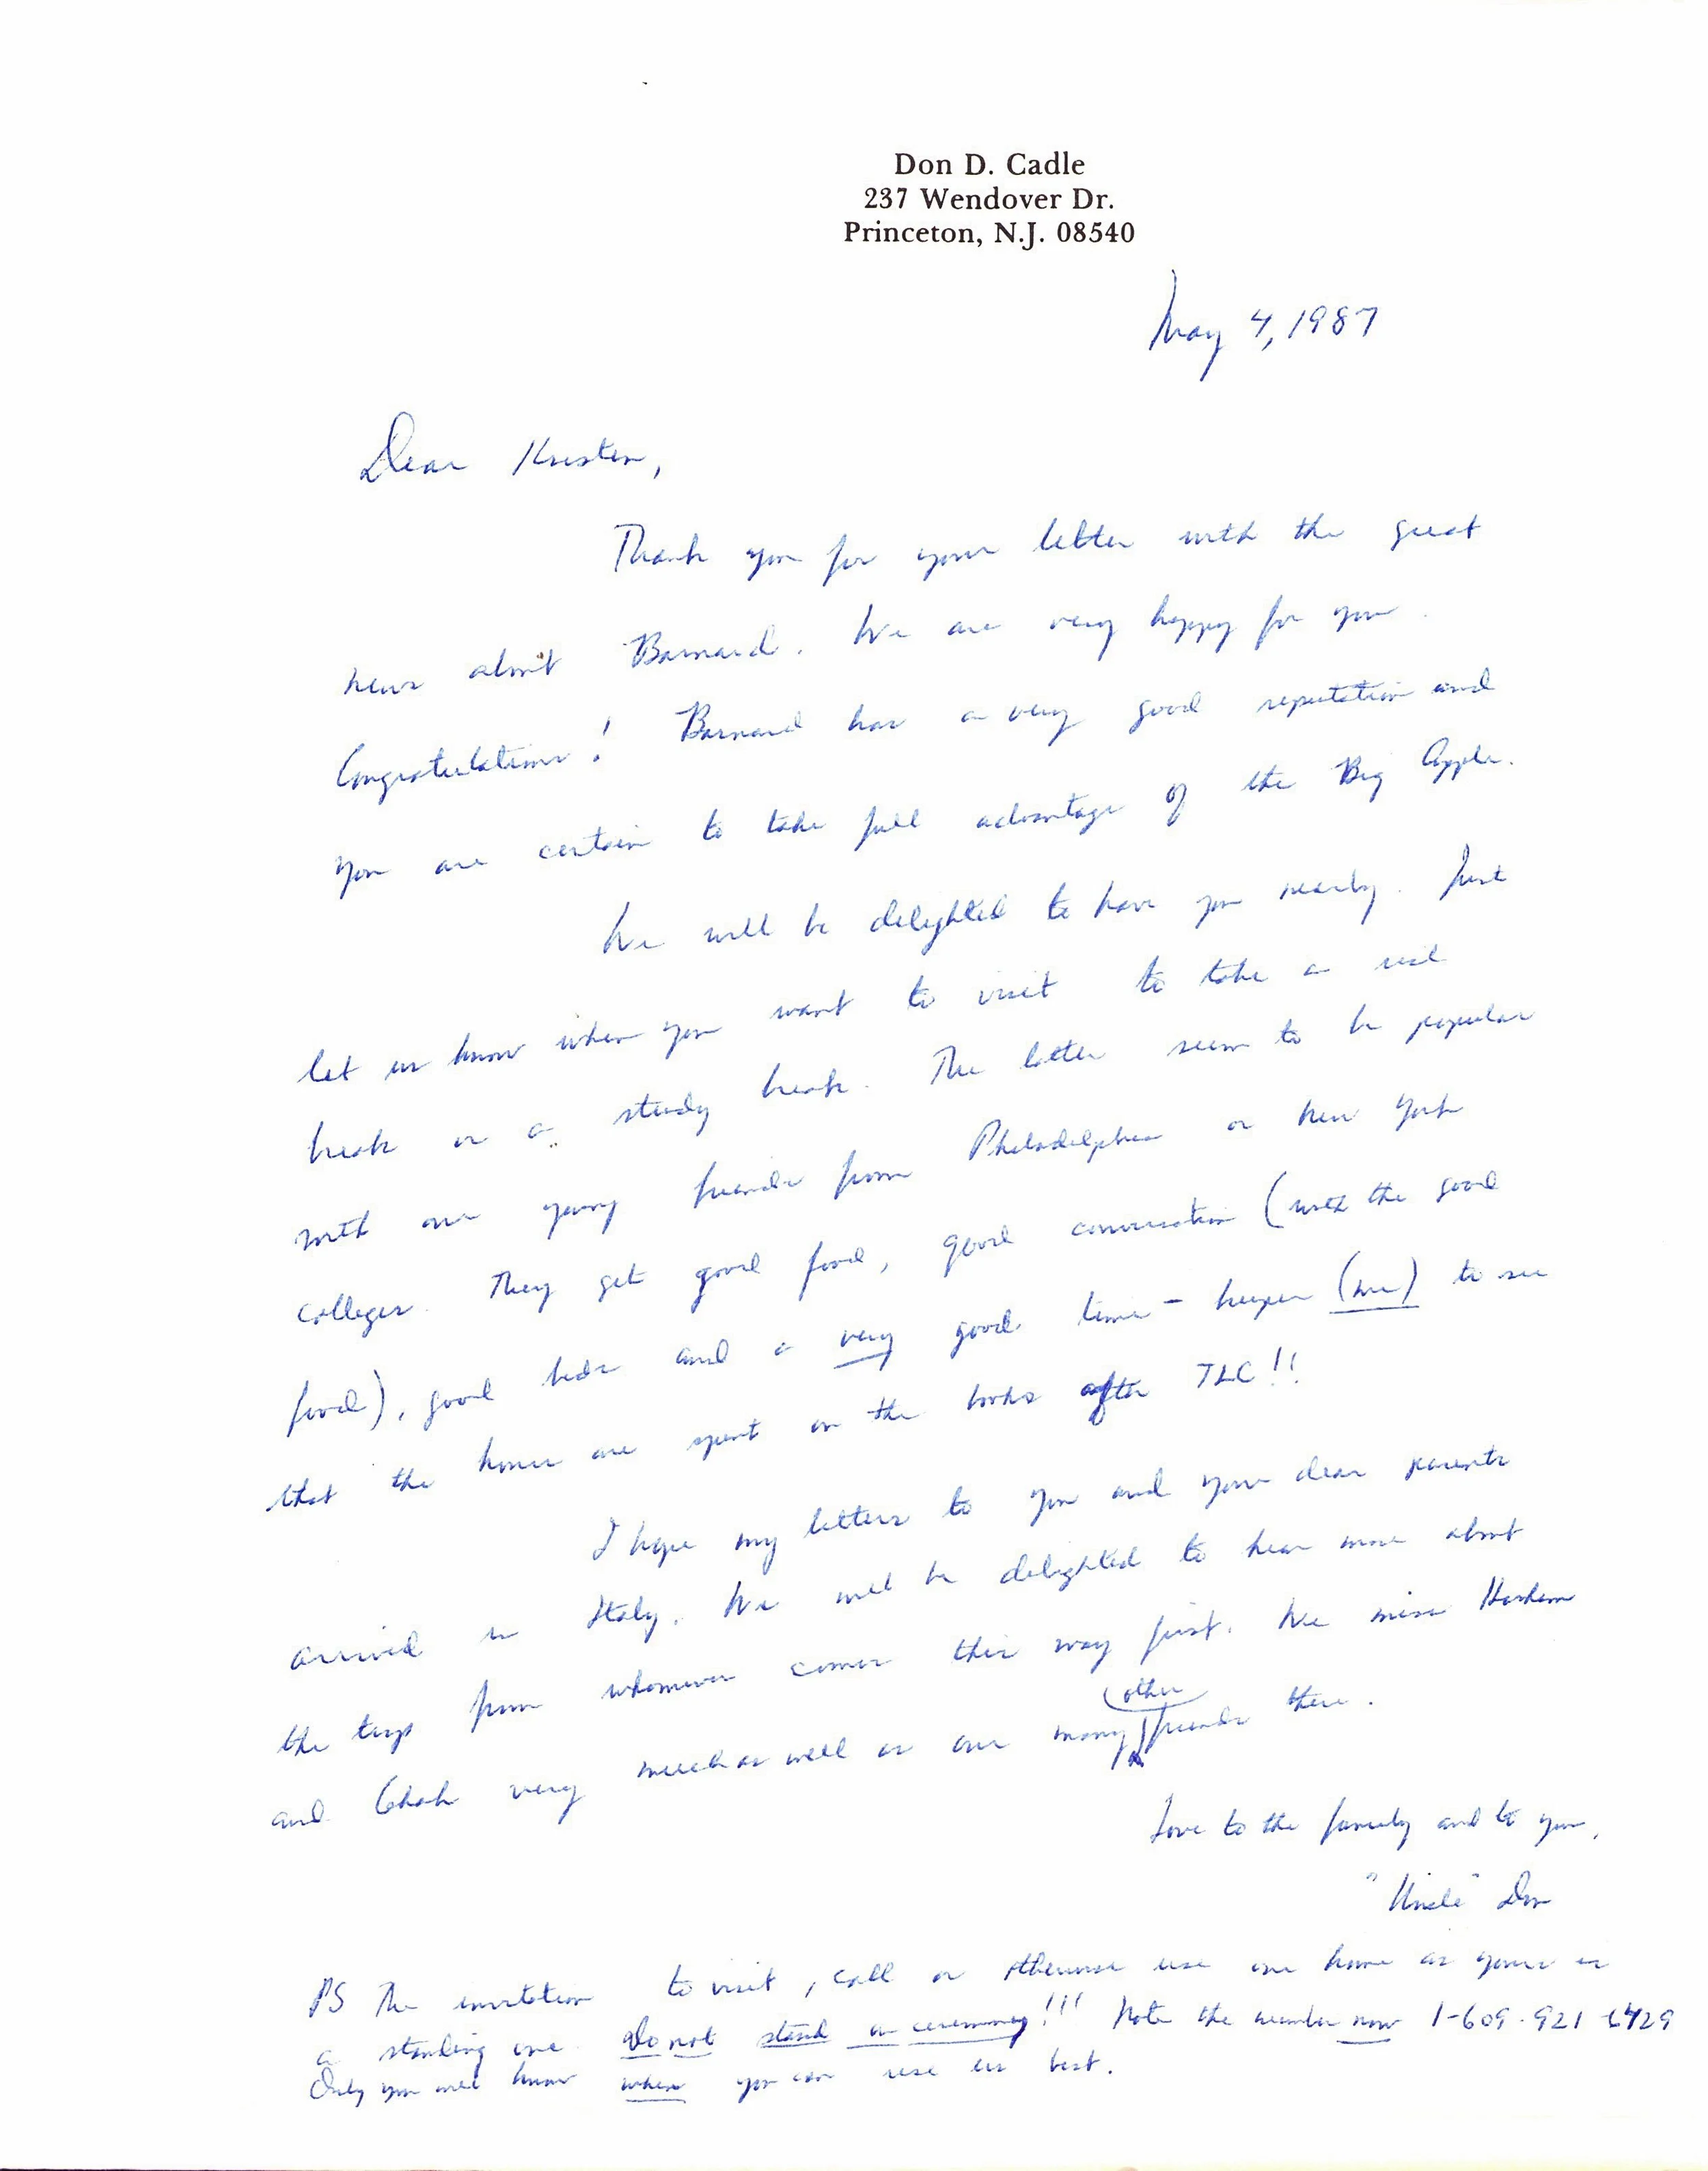 Don D. Cadle
237 Wendover Dr.
Princeton, N.J. 08540
May 4, 1987
Dear Kristen,
Thank you for your letter with the great
news about Barnard. We are very happy for you.
Congratulations! Barnard has a very good reputation and
you are certain to take full advantage of the Big Apple.
We will be delighted to have you nearby. Just
let us know when you want to visit to take a real
break or a study break. The latter seem to be popular
with our young friends from Philadelphia or New York
colleges. They get good food, good conversation (with the good
food), good beds and a very good time-keeper (me) to see
that the hours are spent on the books after TLC!!
I hope my letters to you and your dear parents
arrived in Italy. We will be delighted to hear more about
the trip from whomever comes this way first. We miss
and very much as well as our many other friends there.
Love to the family and to you,
"Uncle" Don
PS The invitation to visit, call or otherwise use our home as yours is
a standing one. Do not stand on ceremony!!! Note the number now 1-609-921-6429
Only you will know when you can use us best.